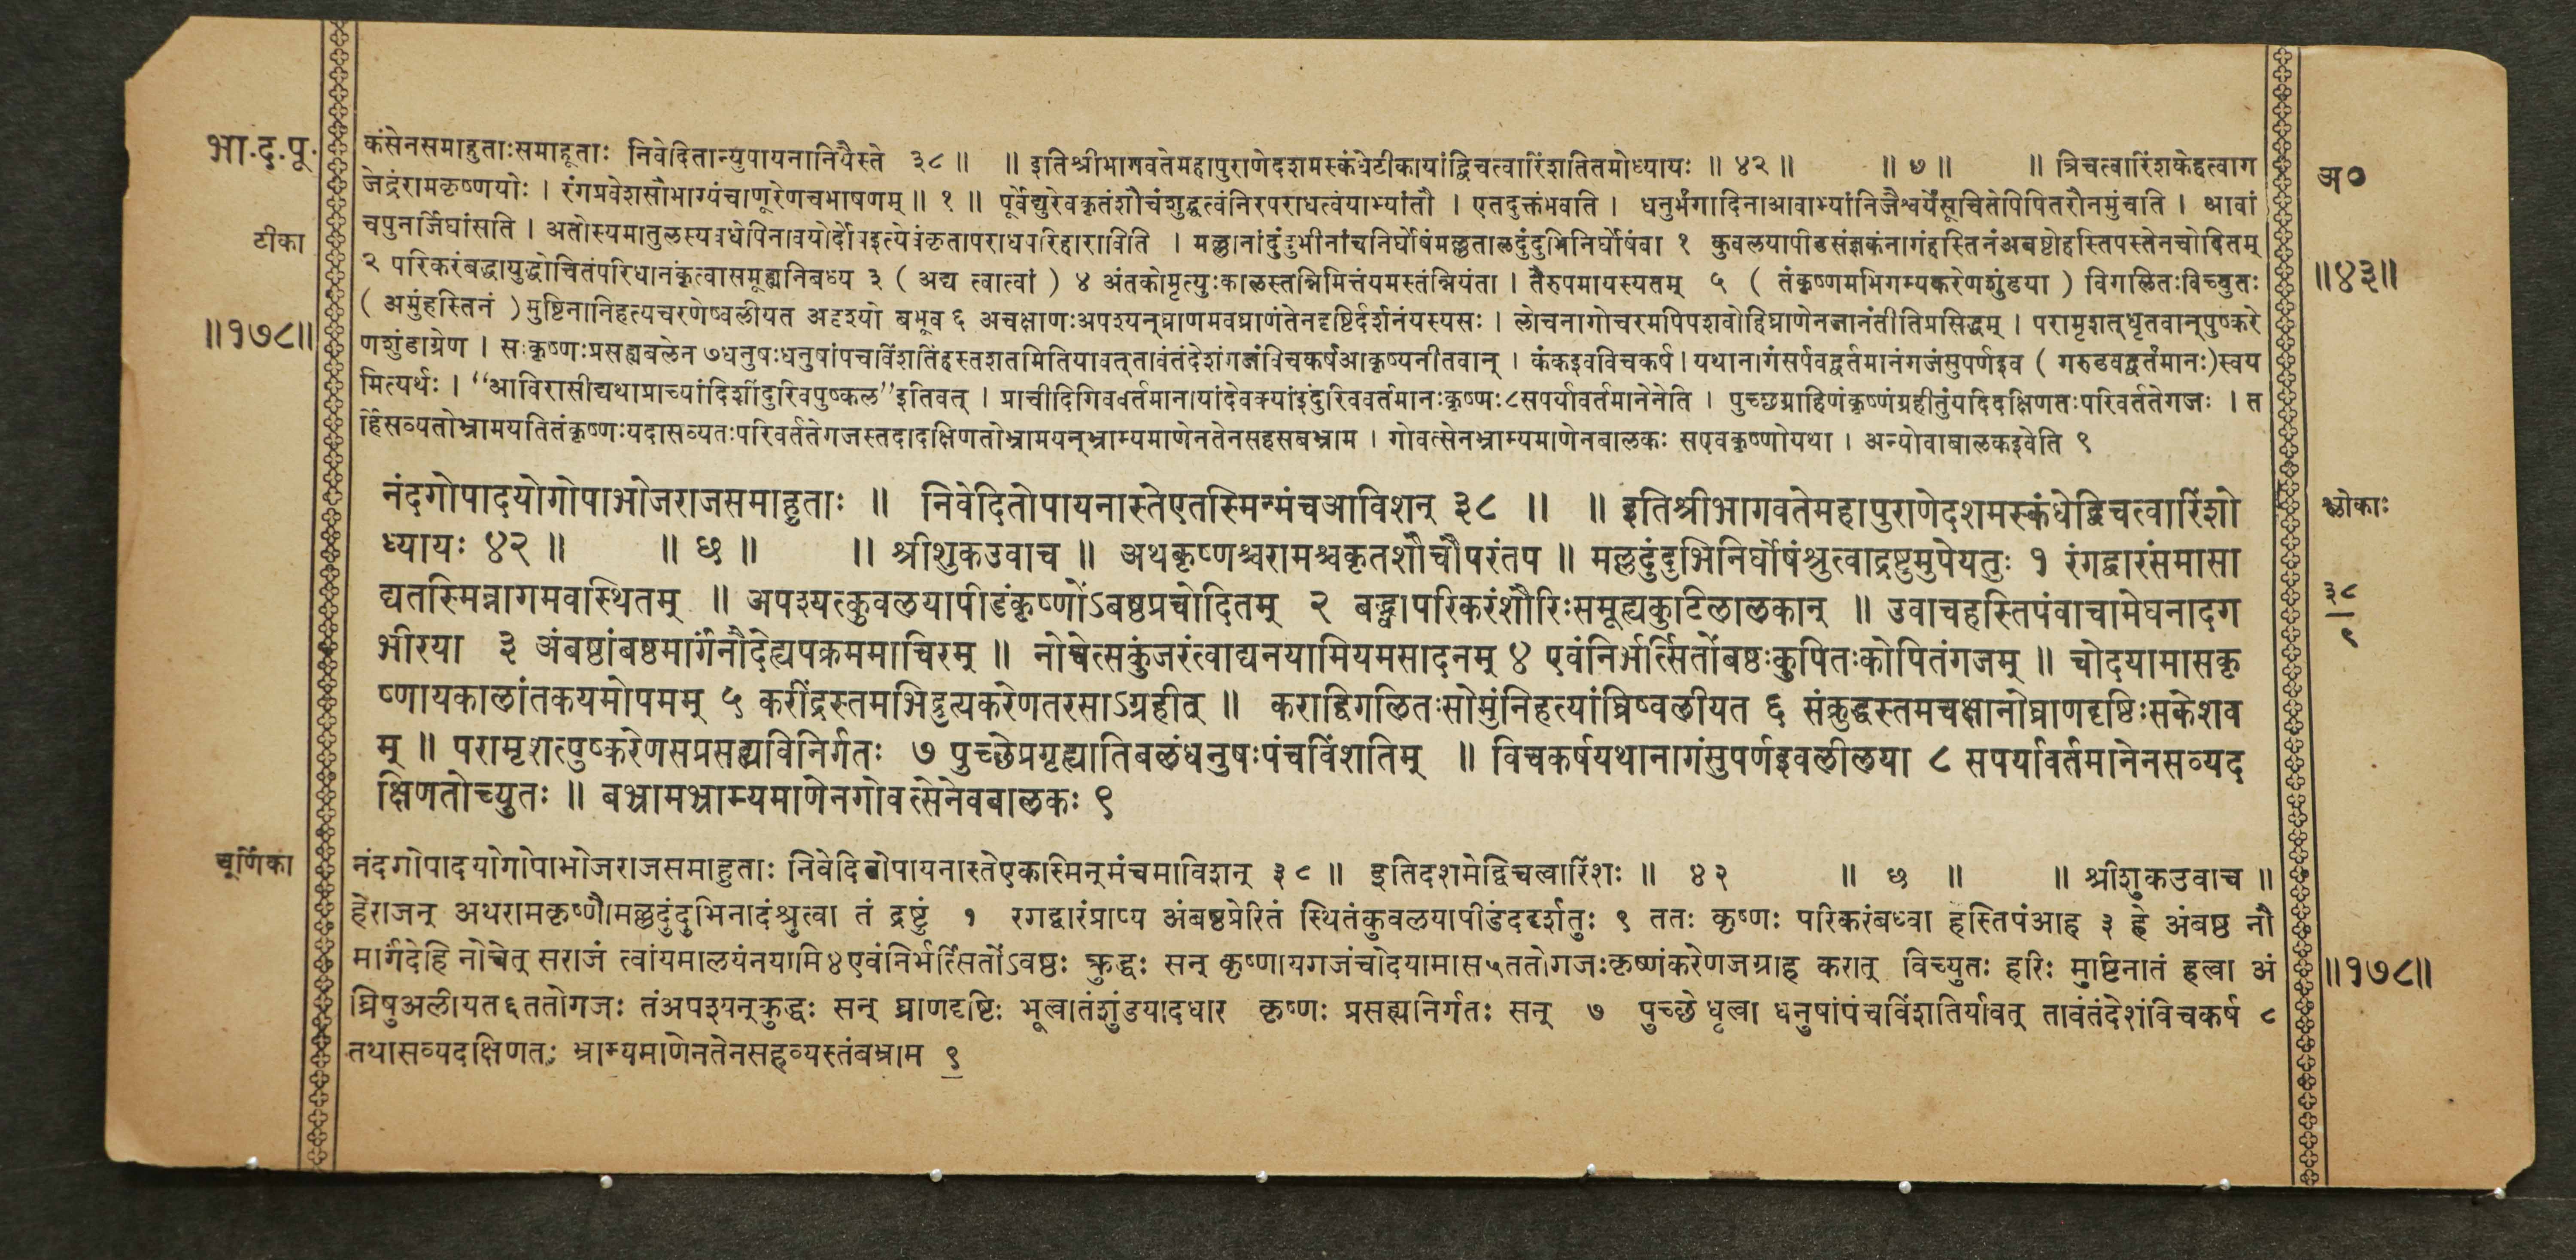 भा.द.पू.
टीका
॥१७८॥
कंसेनसमाहुताःसमाहूताः निवेदितान्युपायनानियैस्ते ३८ ॥ ॥ इतिश्रीभागवतेमहापुराणेदशमस्कंधेटीकायांद्विचत्वारिंशतितमोध्यायः ॥ ४२ ॥ ॥ ७ ॥ ॥ त्रिचत्वारिंशकेहत्वाग
जेद्रंरामकृष्णयोः । रंगप्रवेशसौभाग्यंचाणूरेणचभाषणम् ॥ १ ॥ पूर्वेद्युरेवकृतंशौचंशुद्धत्वंनिरपराधत्वंयाभ्यांतौ । एतदुक्तंभवति । धनुर्भंगादिनाआवाभ्यांनिजैश्वर्येसूचितेपिपितरौनमुंचति । आवां
चपुनर्जिघांसति । अतोस्यमातुलस्यवधेपिनावयोर्दोषइत्येवंकृतापराधपरिहाराविति । मल्लानांदुंदुभीनांचनिर्घोषंमल्लतालदुंदुभिनिर्घोषंवा १ कुवलयापीडसंज्ञकंनागंहस्तिनंअबष्टोहस्तिपस्तेनचोदितम्
२ परिकरंबद्धायुद्धोचितंपरिधानंकृत्वासमूह्यनिबध्य ३ ( अद्य त्वात्वां ) ४ अंतकोमृत्युःकालस्तन्निमित्तंयमस्तंन्नियंता । तैरुपमायस्यतम् ५ ( तंकृष्णमभिगम्यकरेणशुंडया ) विगलितःविच्युतः
( अमुंहस्तिनं ) मुष्टिनानिहत्यचरणेष्वलीयत अदृश्यो बभूव ६ अचक्षाणःअपश्यन्घ्राणमवघ्राणंतेनदृष्टिर्दर्शनंयस्यसः । लोचनागोचरमपिपशवोहिघ्राणेनजानंतीतिप्रसिद्धम् । परामृशत्धृतवान्पुष्करे
णशुंडाग्रेण । सःकृष्णःप्रसह्यबलेन ७धनुषःधनुषांपचविंशतिंहस्तशतमितियावत्तावंतंदेशंगजंविचकर्षआकृष्यनीतवान् । कंकइवविचकर्ष । यथानागंसर्पवद्वर्तमानंगजंसुपर्णइव ( गरुडवद्वर्तमानः)स्वय
मित्यर्थः । “आविरासीद्यथाप्राच्यांदिशींदुरिवपुष्कल”इतिवत् । प्राचीदिगिववर्तमानायांदेवक्यांइंदुरिववर्तमानःकृष्णः८सपर्यावर्तमानेनेति । पुच्छग्राहिणंकृष्णंग्रहीतुंयदिदक्षिणतःपरिवर्ततेगजः । त
र्हिसव्यतोभ्रामयतितंकृष्णःयदासव्यतःपरिवर्ततेगजस्तदादक्षिणतोभ्रामयन्भ्राम्यमाणेनतेनसहसबभ्राम । गोवत्सेनभ्राम्यमाणेनबालकः सएवकृष्णोयथा । अन्योवाबालकइवेति ९
नंदगोपादयोगोपाभोजराजसमाहुताः ॥ निवेदितोपायनास्तेएतस्मिन्मंचआविशन् ३८ ॥ ॥ इतिश्रीभागवतेमहापुराणेदशमस्कंधेद्विचत्वारिंशो
ध्यायः ४२ ॥ ॥ छ ॥ ॥ श्रीशुकउवाच ॥ अथकृष्णश्चरामश्चकृतशौचौपरंतप ॥ मल्लदुंदुभिनिर्घोषंश्रुत्वाद्रष्टुमुपेयतुः १ रंगद्वारंसमासा
द्यतस्मिन्नागमवस्थितम् ॥ अपश्यत्कुवलयापीडंकृष्णोंऽबष्ठप्रचोदितम् २ बद्ध्वापरिकरंशौरिःसमूह्यकुटिलालकान् ॥ उवाचहस्तिपंवाचामेघनादग
भीरया ३ अंबष्ठांबष्ठमार्गंनौदेह्यपक्रममाचिरम् ॥ नोचेत्सकुंजरंत्वाद्यनयामियमसादनम् ४ एवंनिर्भर्त्सितोंबष्ठःकुपितःकोपितंगजम् ॥ चोदयामासकृ
ष्णायकालांतकयमोपमम् ५ करींद्रस्तमभिद्रुत्यकरेणतरसाऽग्रहीत् ॥ कराद्विगलितःसोमुंनिहत्यांघ्रिष्वलीयत ६ संक्रुद्धस्तमचक्षानोघ्राणदृष्टिःसकेशव
म् ॥ परामृशत्पुष्करेणसप्रसह्यविनिर्गतः ७ पुच्छेप्रगृह्यातिबलंधनुषःपंचविंशतिम् ॥ विचकर्षयथानागंसुपर्णइवलीलया ८ सपर्यावर्तमानेनसव्यद
क्षिणतोच्युतः ॥ बभ्रामभ्राम्यमाणेनगोवत्सेनेवबालकः ९
चूर्णिका
नंदगोपादयोगोपाभोजराजसमाहुताः निवेदितोपायनास्तेएकस्मिन्मंचमाविशन् ३८ ॥ इतिदशमेद्विचत्वारिंशः ॥ ४२ ॥ छ ॥ ॥ श्रीशुकउवाच ॥
हेराजन् अथरामकृष्णौमल्लदुंदुभिनादंश्रुत्वा तं द्रष्टुं १ रगद्वारंप्राप्य अंबष्ठप्रेरितं स्थितंकुवलयापीडंददर्शतुः ९ ततः कृष्णः परिकरंबध्वा हस्तिपंआह ३ हे अंबष्ठ नौ
मार्गंदेहि नोचेत् सराजं त्वांयमालयंनयामि४एवंनिर्भर्त्सितोंऽवष्ठः क्रुद्धः सन् कृष्णायगजंचोदयामास५ततोगजःकृष्णंकरेणजग्राह करात् विच्युतः हरिः मुष्टिनातं हत्वा अं
घ्रिषुअलीयत६ततोगजः तंअपश्यन्क्रुद्धः सन् घ्राणदृष्टिः भूत्वातंशुंडयादधार कृष्णः प्रसह्यनिर्गतः सन् ७ पुच्छे धृत्वा धनुषांपंचविंशतिर्यावत् तावंतंदेशंविचकर्ष ८
तथासव्यदक्षिणतः भ्राम्यमाणेनतेनसहव्यस्तंबभ्राम ९
अ०
॥४३॥
श्लोकाः
३८
९
॥१७८॥